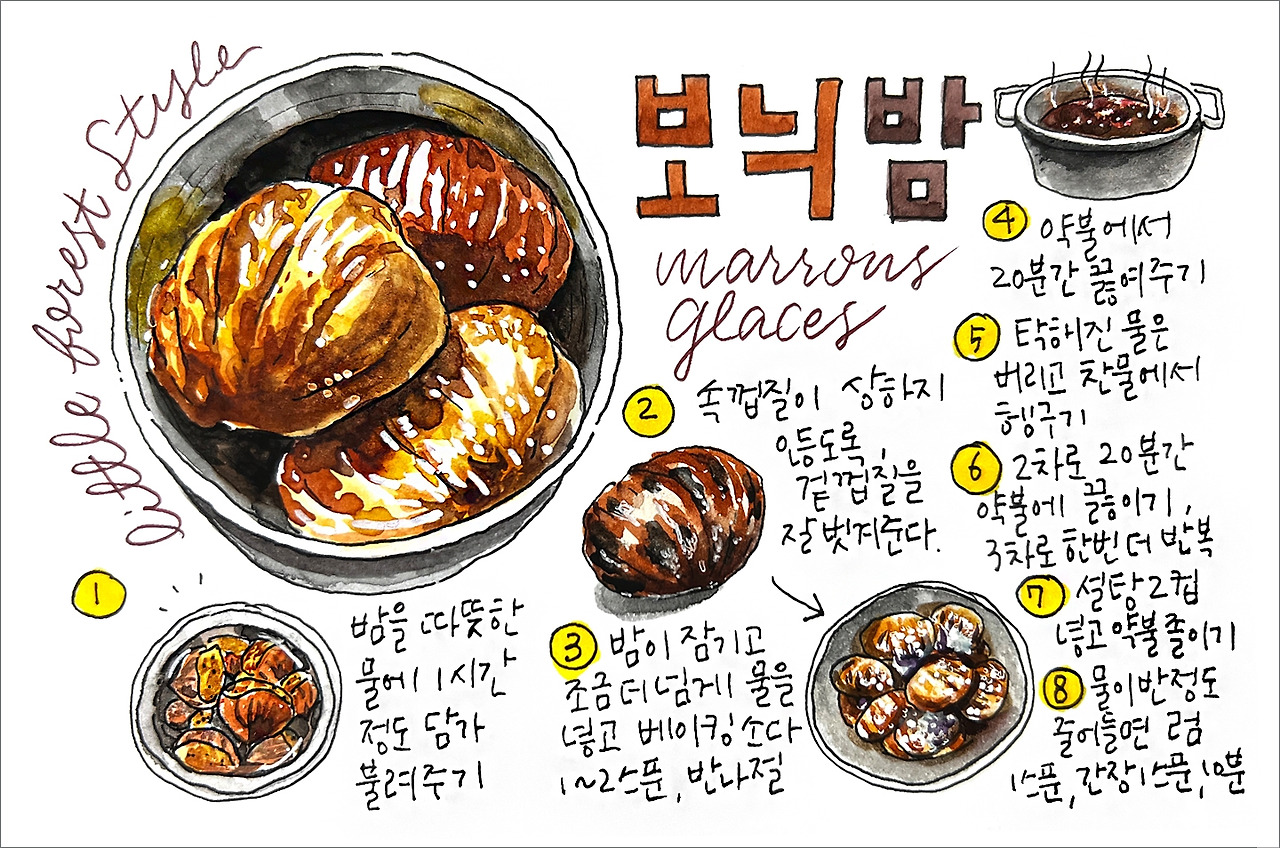 Little forest Style
보늬밤
marrons
glaces
1
밤을 따뜻한
물에 1시간
정도 담가
불려주기
2
속껍질이 상하지
않도록,
겉껍질을
잘 벗겨준다.
3 밤이 잠기고
조금 더 넘게 물을
넣고 베이킹소다
1~2스푼, 반나절
4 약불에서
20분간 끓여주기
5 탁해진 물은
버리고 찬물에서
헹구기
6 2차로 20분간
약불에 끓이기,
3차로 한번 더 반복
7 설탕 2컵
넣고 약불 졸이기
8 물이 반정도
줄어들면 럼
1스푼, 간장 1스푼, 10분